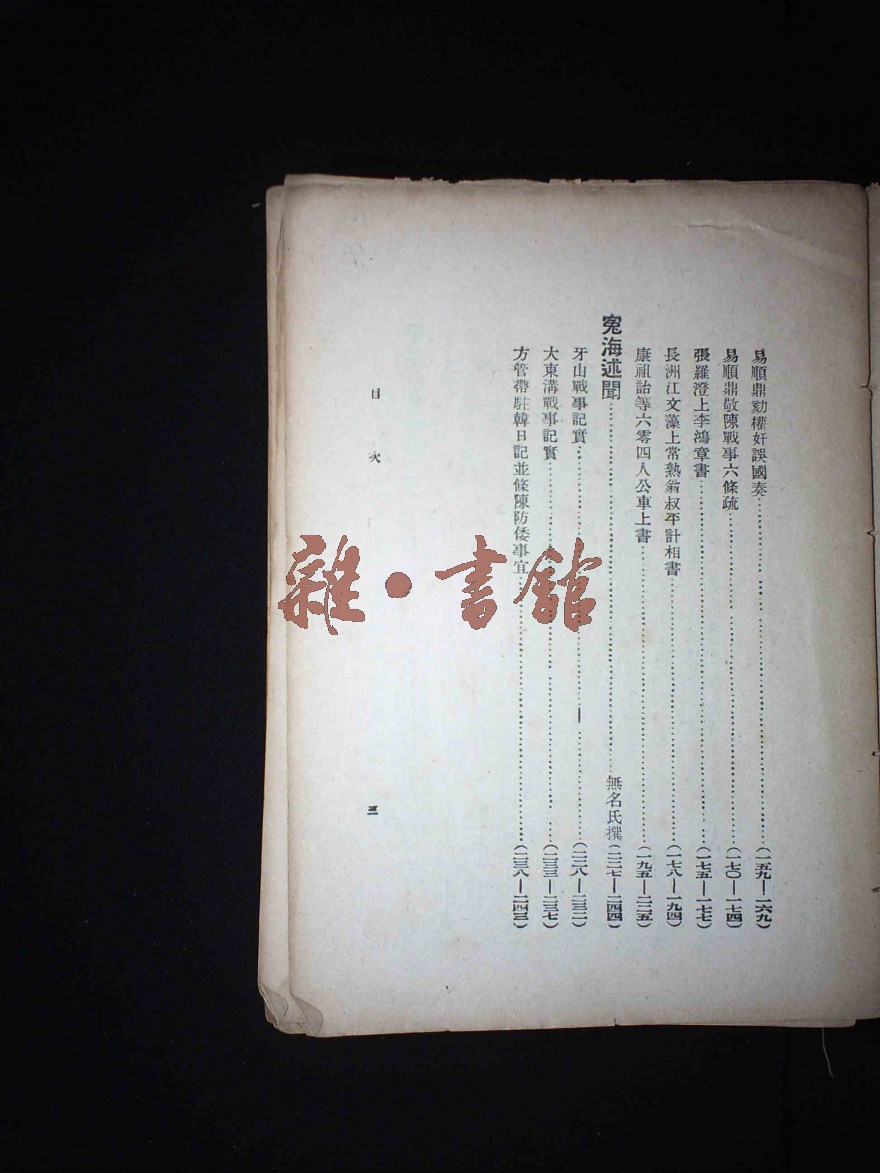 易順鼎劾權奸誤國奏……(一五九—一六九)
易順鼎敬陳戰事六條疏……(一七〇—一七四)
張羅澄上李鴻章書……(一七五—一七七)
長洲江文藻上常熟翁叔平計相書……(一七八—一九四)
康祖詒等六零四人公車上書……(一九五—二二五)
冤海述聞……無名氏撰(二二七—二四四)
牙山戰事記實……(二二八—二三二)
大東溝戰事記實……(二三三—二三七)
方管帶駐韓日記並條陳防倭事宜……(二三八—二四三)
目次 三
雜·書館